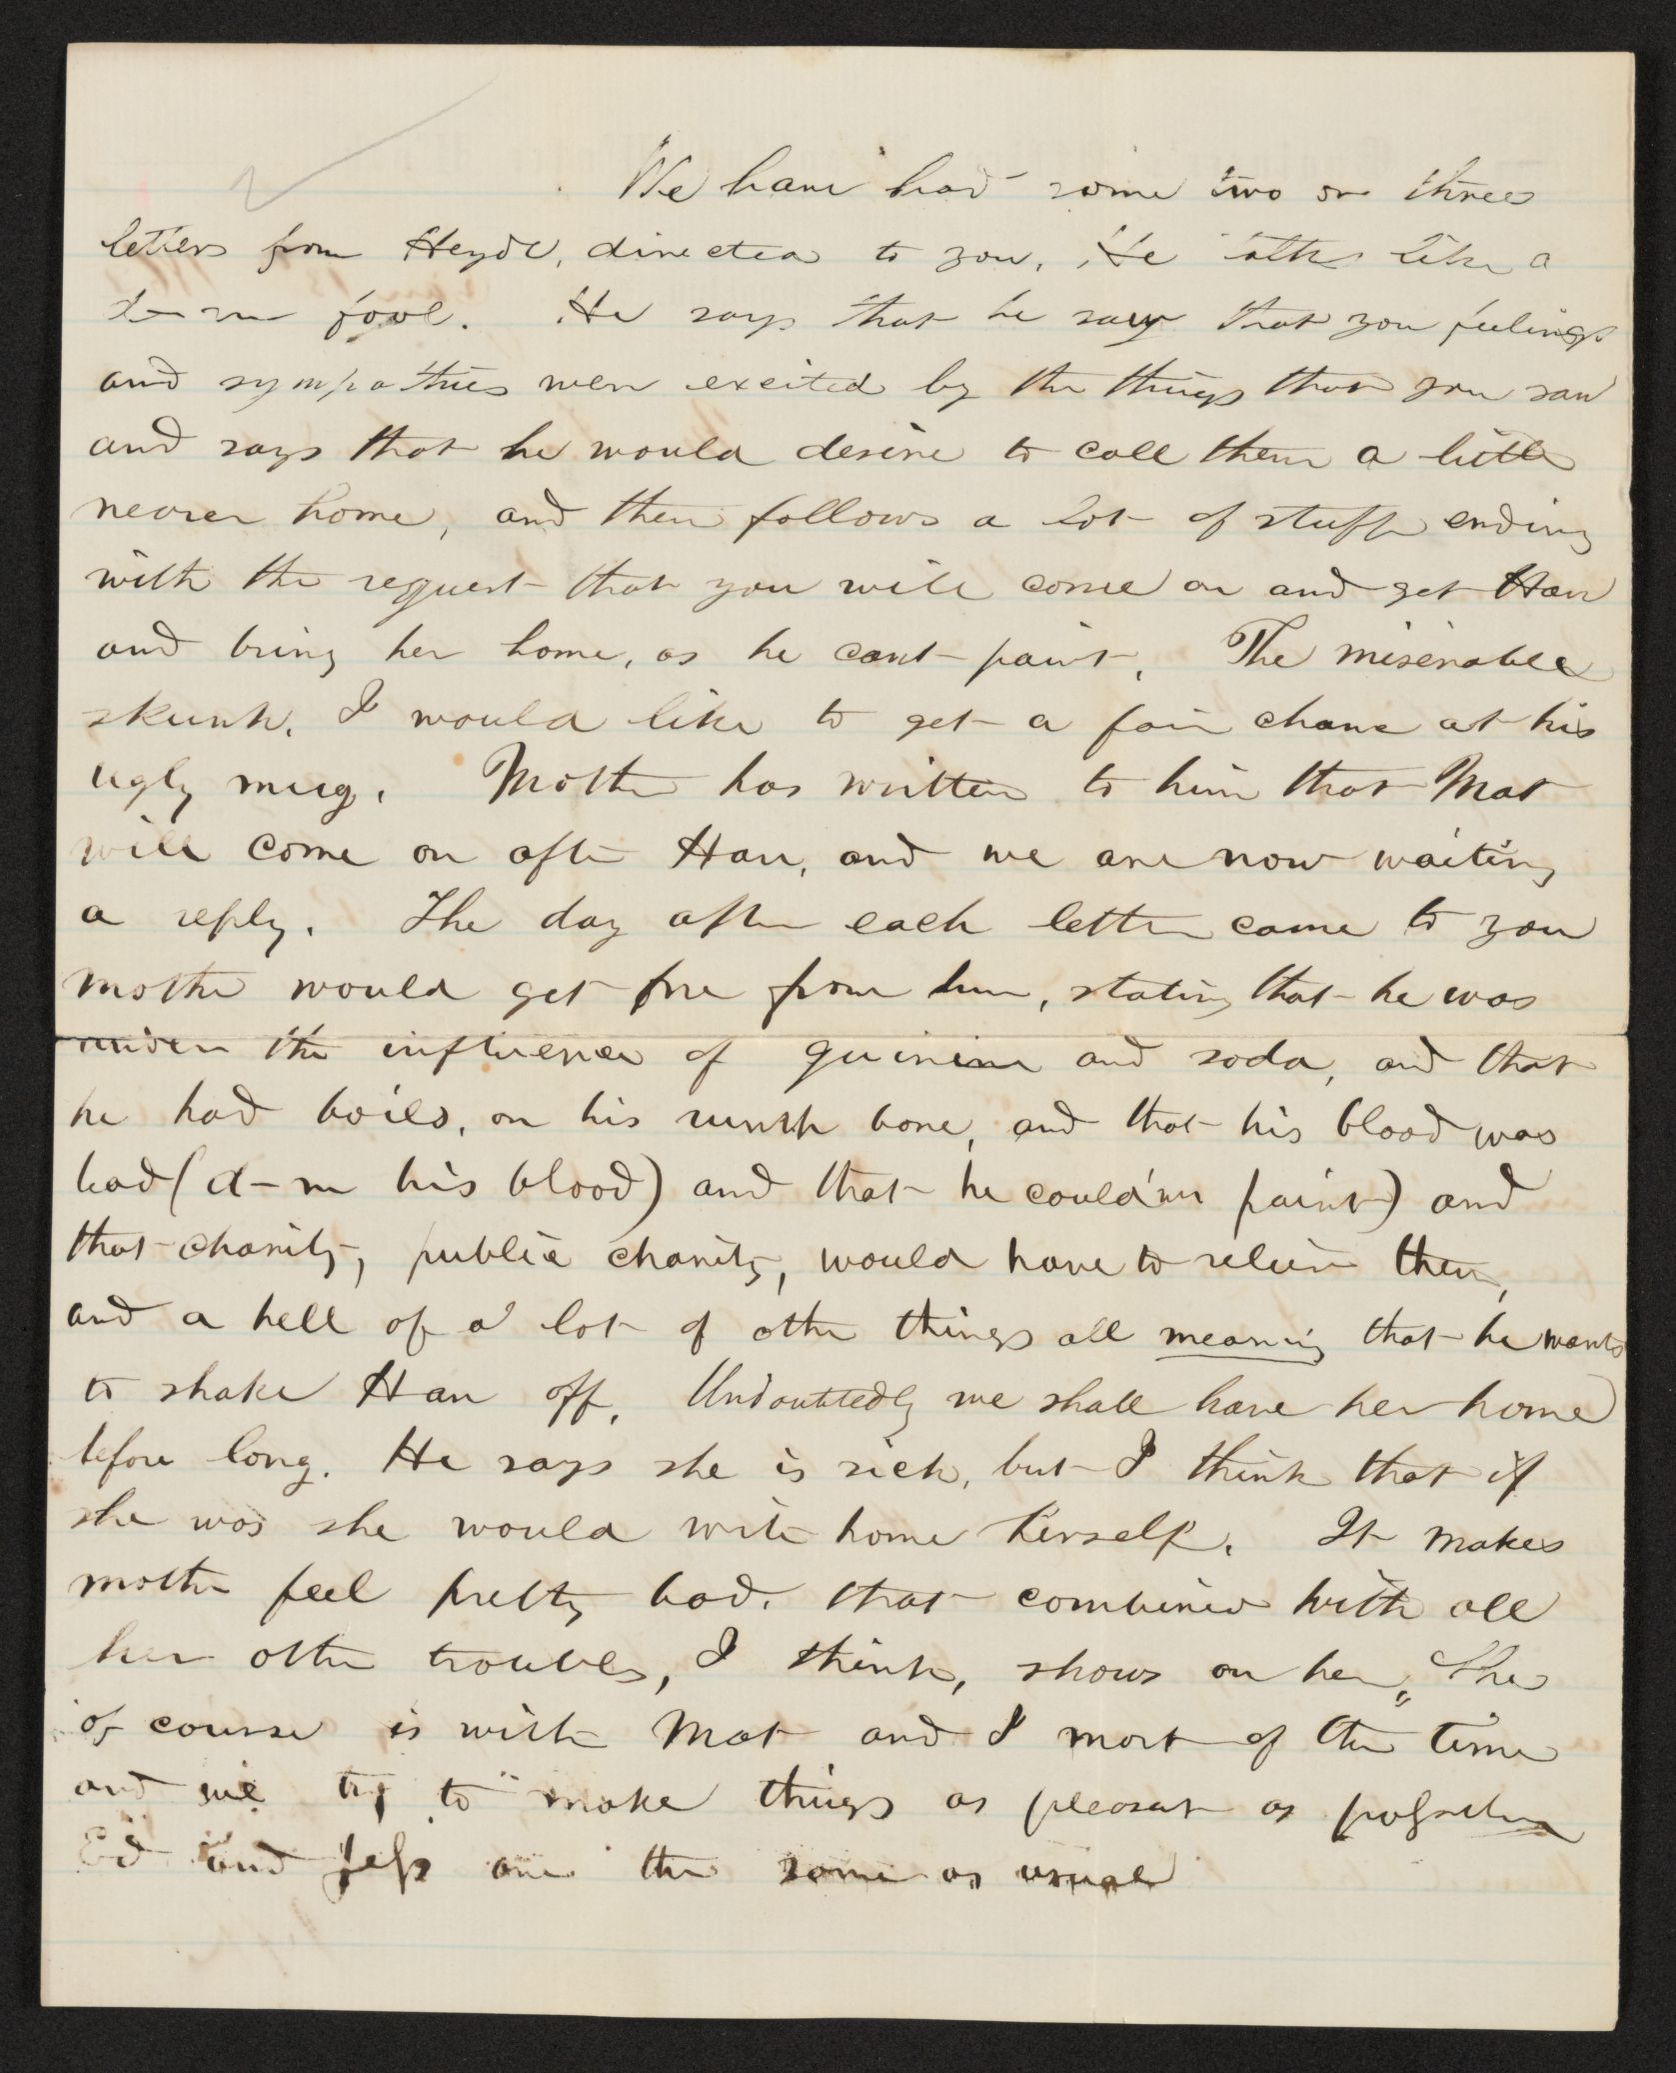 We have had some two or three
letters from Heyde, directed to you, He talks like a
d—m fool. He says that he saw that you feelings
and sympathies were excited by the things that you saw
and says that he would desire to call them a little
nearer home, and then follows a lot of stuff ending
with the request that you will come on and get Han
and bring her home, as he cant paint. The miserable
skunk. I would like to get a fair chance at his
ugly mug. Mother has written to him that Mat
will come on after Han, and we are now waiting
a reply. The day after each letter came to you
mother would get one from him, stating that he was
under the influence of quinine and soda, and that
he had boils, on his rump bone, and that his blood was
bad (d—m his blood) and that he could'nt paint) and
that charity, public charity, would have to relieve them,
and a hell of a lot of other things all meaning that he wants
to shake Han off. Undoubtedly we shall have her home
before long. He says she is sick, but I think that if
she was she would write home herself. It makes
mother feel pretty bad, that combined with all
her other troubles, I think, shows on her, She
of course is with Mat and I most of the time
and we try to make things as pleasant as possible
Ed and Jess are the same as usual